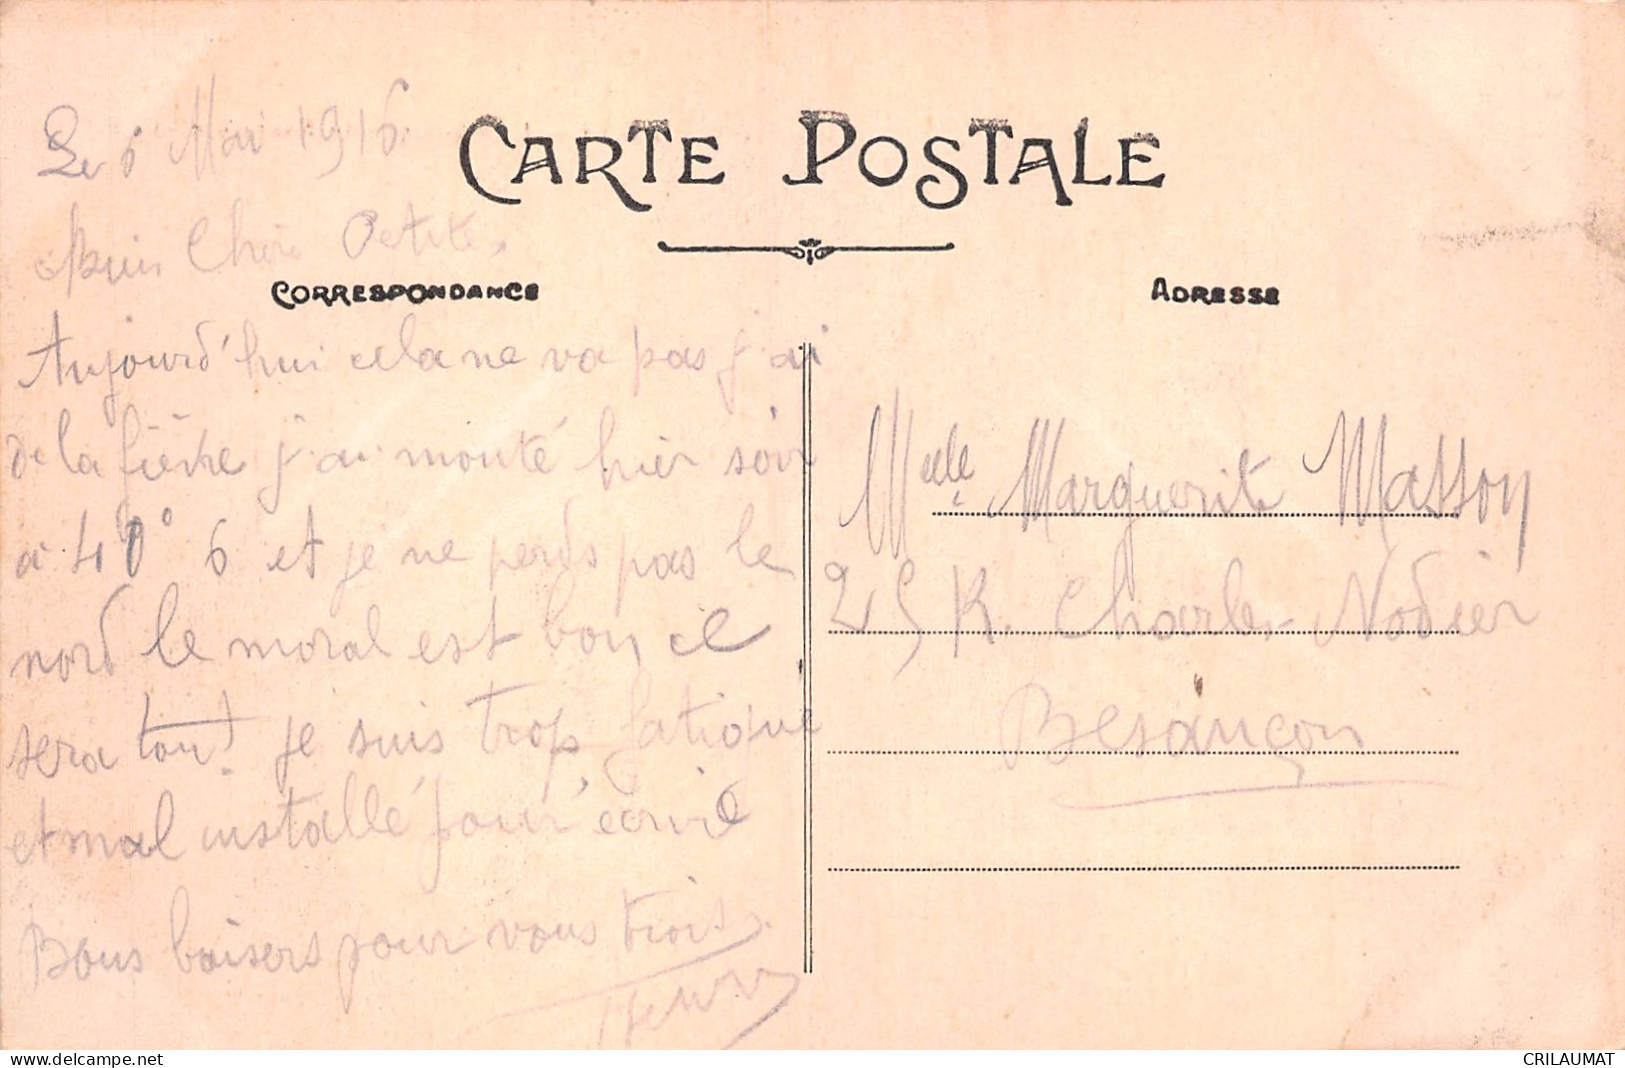 CARTE POSTALE
CORRESPONDANCE
ADRESSE
Le 6 Mai 1916
Chère Petite,
Aujourd'hui cela ne va pas j'ai
de la fièvre j'ai monté hier soir
à 40° 6 et je ne perds pas le
nord le moral est bon ce
sera tout! je suis trop fatigué
et mal installé pour écrire
Bons baisers pour vous trois.
Henry
Melle Marguerite Masson
25 R. Charles-Nodier
Besançon
delcampe.net
CRILAUMAT